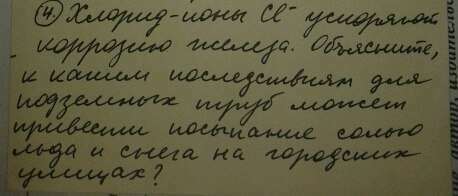 4. Хлорид-ионы Cl⁻ ускоряют
коррозию железа. Объясните,
к каким последствиям для
подземных труб может
привести посыпание солью
льда и снега на городских
улицах?